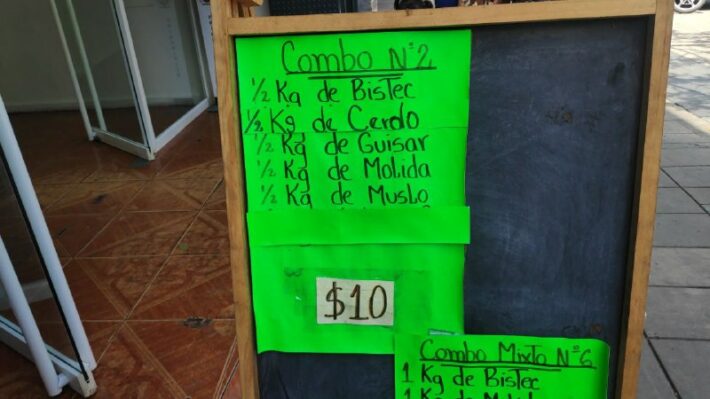 Combo N°2
1/2 Kg de BisTec
1/2 Kg de Cerdo
1/2 Kg de Guisar
1/2 Kg de Molida
1/2 Kg de Muslo
$10
Combo Mixto N°6
1 Kg de BisTec
1 Kg de